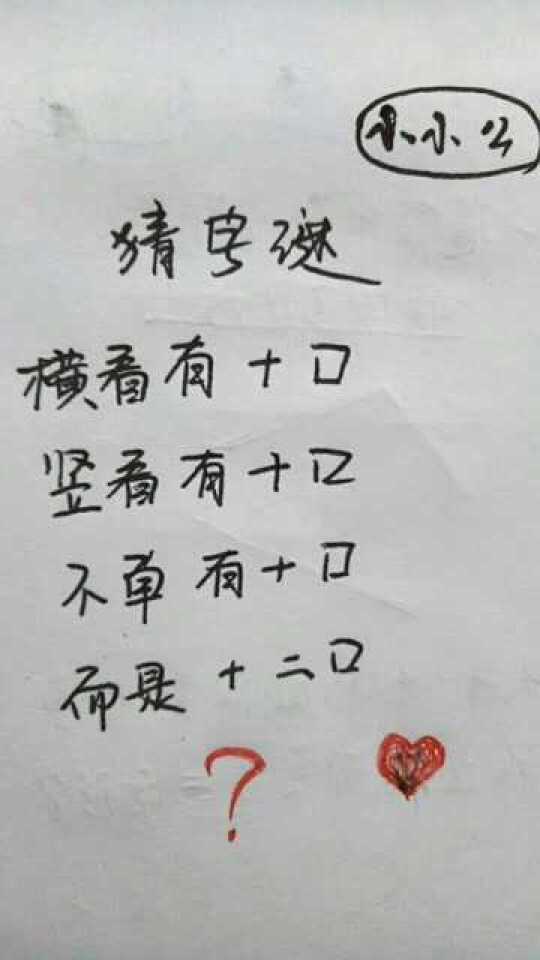 小小公
猜字谜
横看有十口
竖看有十口
不单有十口
而是十二口
?